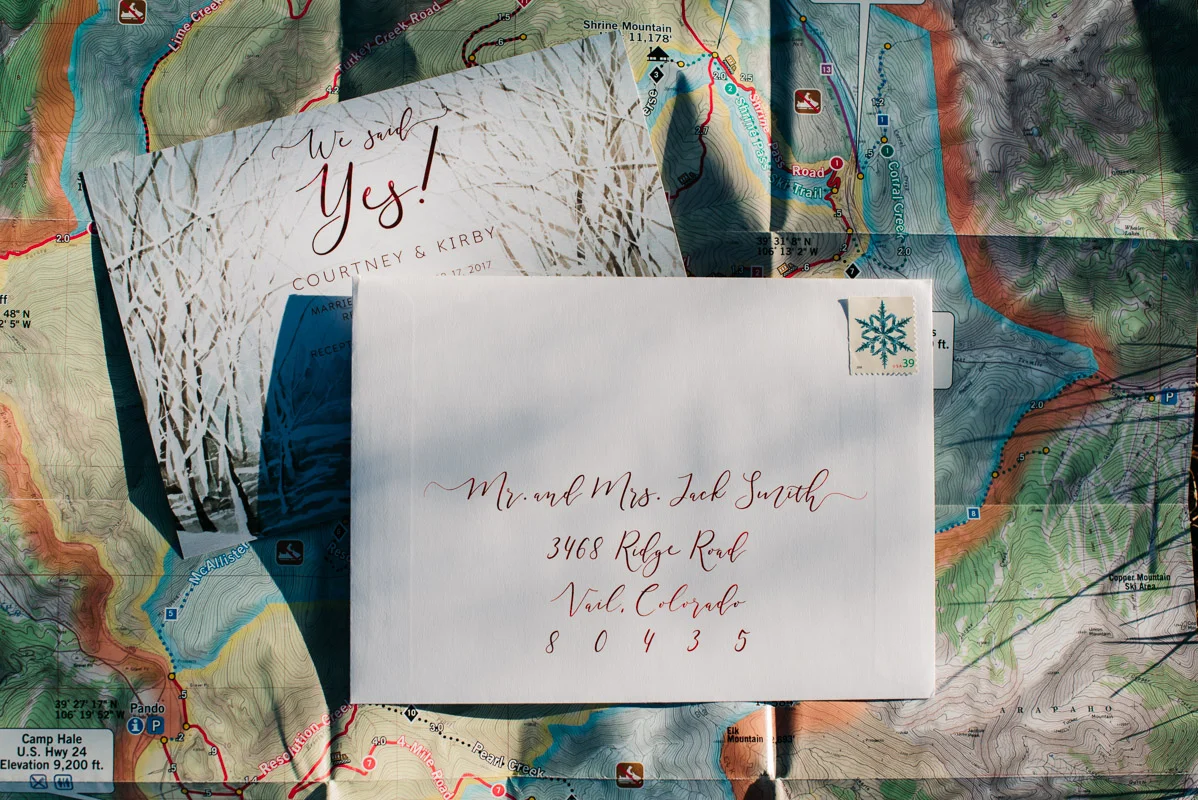 Lime Creek
Turkey Creek Road
Shrine Mountain
11,178'
We said
Yes!
COURTNEY & KIRBY
17, 2017
MARRIE
RECEPT
Mr. and Mrs. Jack Smith
3468 Ridge Road
Vail, Colorado
8 0 4 3 5
39
1.5
.6
4.2
2.0
3
2.0
2.5
2
13
1
Road
Trail
Corral Creek
1
.5
2.0
.6
7
39° 31' 8" N
106° 13' 2" W
Wheeler
Lakes
48" N
2' 5" W
ft.
2.0
P
.5
8
Copper Mountain
Ski Area
McAllister
5
39° 27' 17" N
106° 19' 52" W
Pando
i P
Camp Hale
U.S. Hwy 24
Elevation 9,200 ft.
.5
.2
.9
Resolution Cree
10
3.0
4.0
7
4-Mile Road
Pearl Creek
7
Elk
Mountain
ARAPAHO